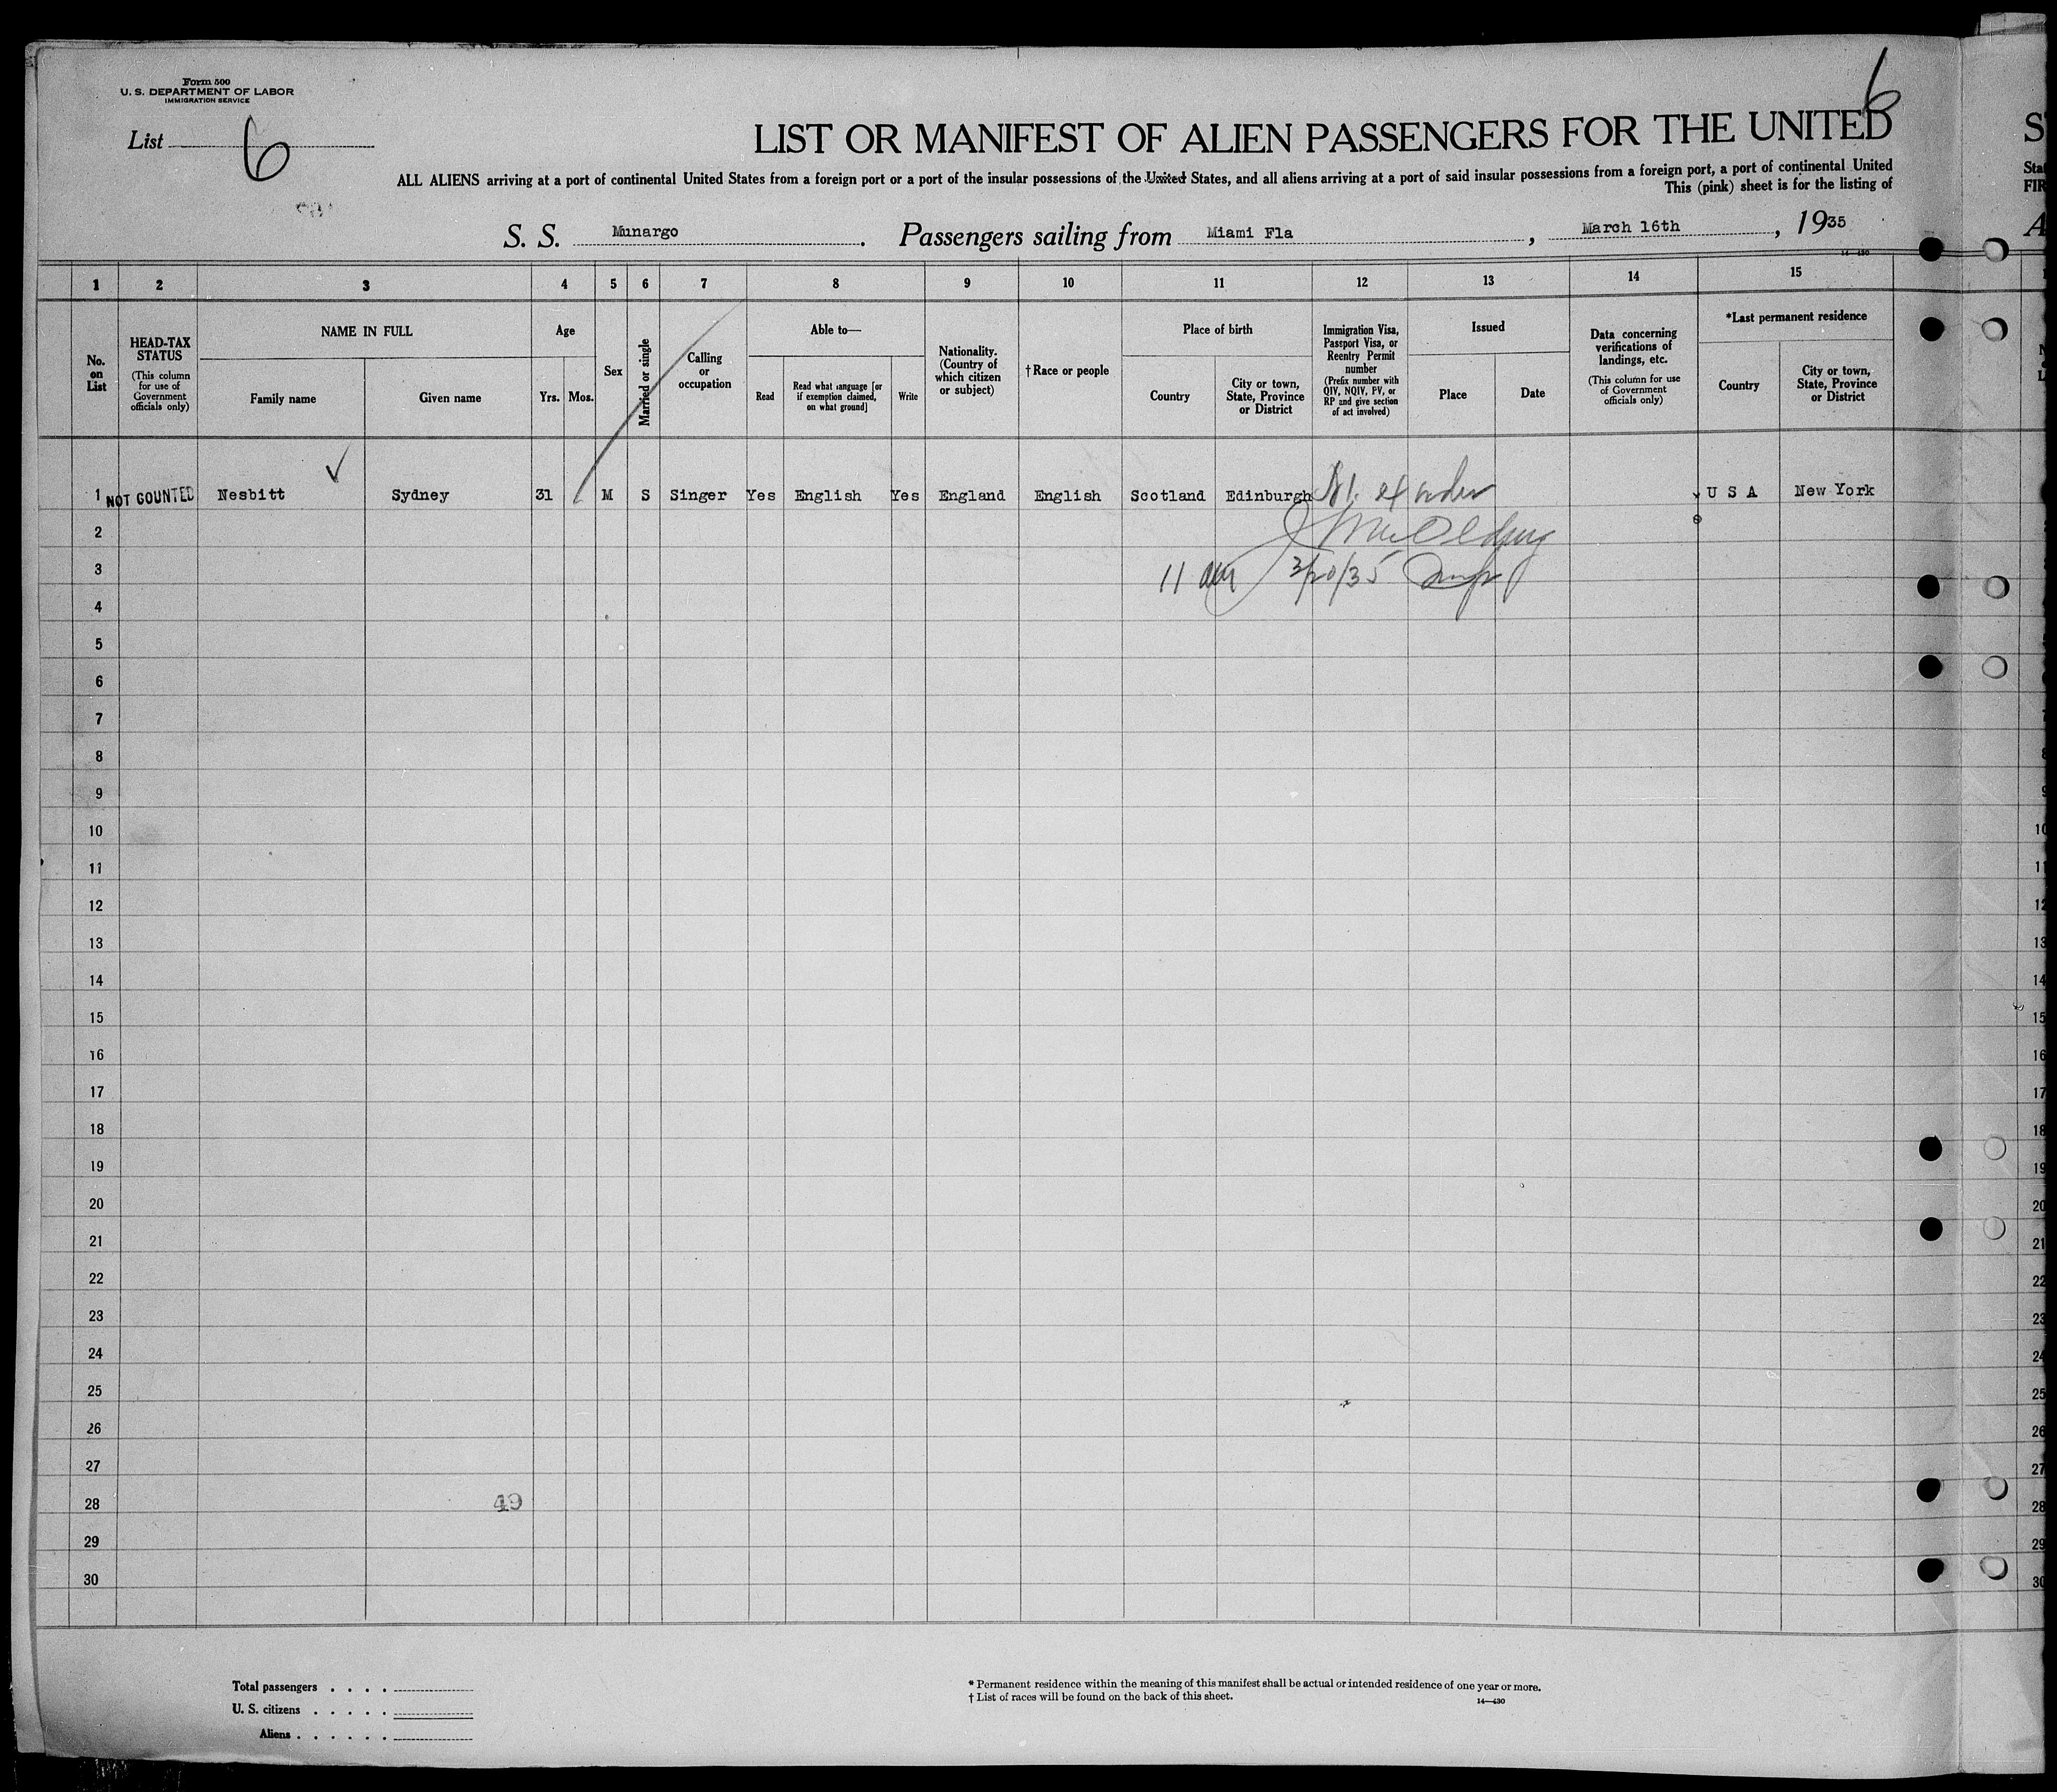 Form 500
U. S. DEPARTMENT OF LABOR
IMMIGRATION SERVICE
List 6
6
LIST OR MANIFEST OF ALIEN PASSENGERS FOR THE UNITED
ALL ALIENS arriving at a port of continental United States from a foreign port or a port of the insular possessions of the United States, and all aliens arriving at a port of said insular possessions from a foreign port, a port of continental United
This (pink) sheet is for the listing of
S. S. Munargo. Passengers sailing from Miami Fla, March 16th, 1935
14—430
1 2 3 4 5 6 7 8 9 10 11 12 13 14 15
No. on List
HEAD-TAX STATUS
(This column for use of Government officials only)
NAME IN FULL
Family name
Given name
Age
Yrs.
Mos.
Sex
Married or single
Calling or occupation
Able to—
Read
Read what language [or if exemption claimed, on what ground]
Write
Nationality. (Country of which citizen or subject)
†Race or people
Place of birth
Country
City or town, State, Province or District
Immigration Visa, Passport Visa, or Reentry Permit number
(Prefix number with QIV, NQIV, PV, or RP and give section of act involved)
Issued
Place
Date
Data concerning verifications of landings, etc.
(This column for use of Government officials only)
*Last permanent residence
Country
City or town, State, Province or District
1 NOT COUNTED Nesbitt Sydney 31 M S Singer Yes English Yes England English Scotland Edinburgh U S A New York
2
3 11 am 3/20/35
4
5
6
7
8
9
10
11
12
13
14
15
16
17
18
19
20
21
22
23
24
25
26
27
28 49
29
30
Total passengers . . . .
U. S. citizens . . . . .
Aliens . . . . . .
* Permanent residence within the meaning of this manifest shall be actual or intended residence of one year or more.
† List of races will be found on the back of this sheet.
14—430